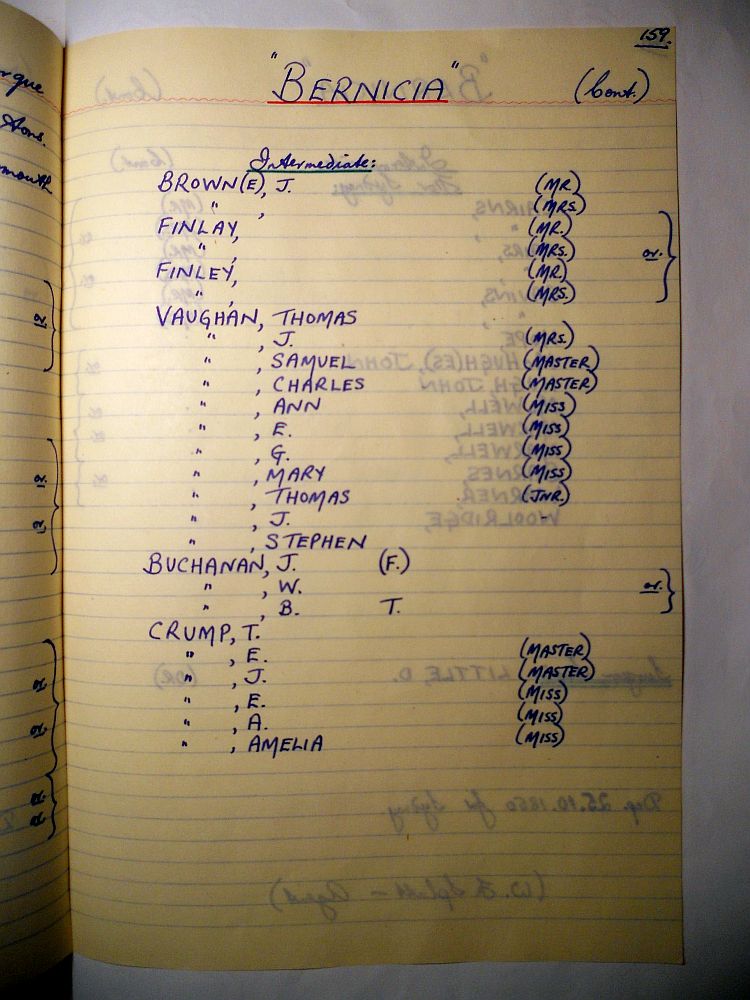 159.
"BERNICIA" (Cont.)
Intermediate:
BROWN(E), J. (MR.)
" , (MRS.)
FINLAY, (MR.)
" , (MRS.) or.
FINLEY, (MR.)
" , (MRS.)
VAUGHAN, THOMAS
" , J. (MRS.)
" , SAMUEL (MASTER)
" , CHARLES (MASTER)
" , ANN (MISS)
" , E. (MISS)
" , G. (MISS)
" , MARY (MISS)
" , THOMAS (JNR.)
" , J. -
" , STEPHEN
BUCHANAN, J. (F.)
" , W. or.
" , B. T.
CRUMP, T.
" , E. (MASTER)
" , J. (MASTER)
" , E. (MISS)
" , A. (MISS)
" , AMELIA (MISS)